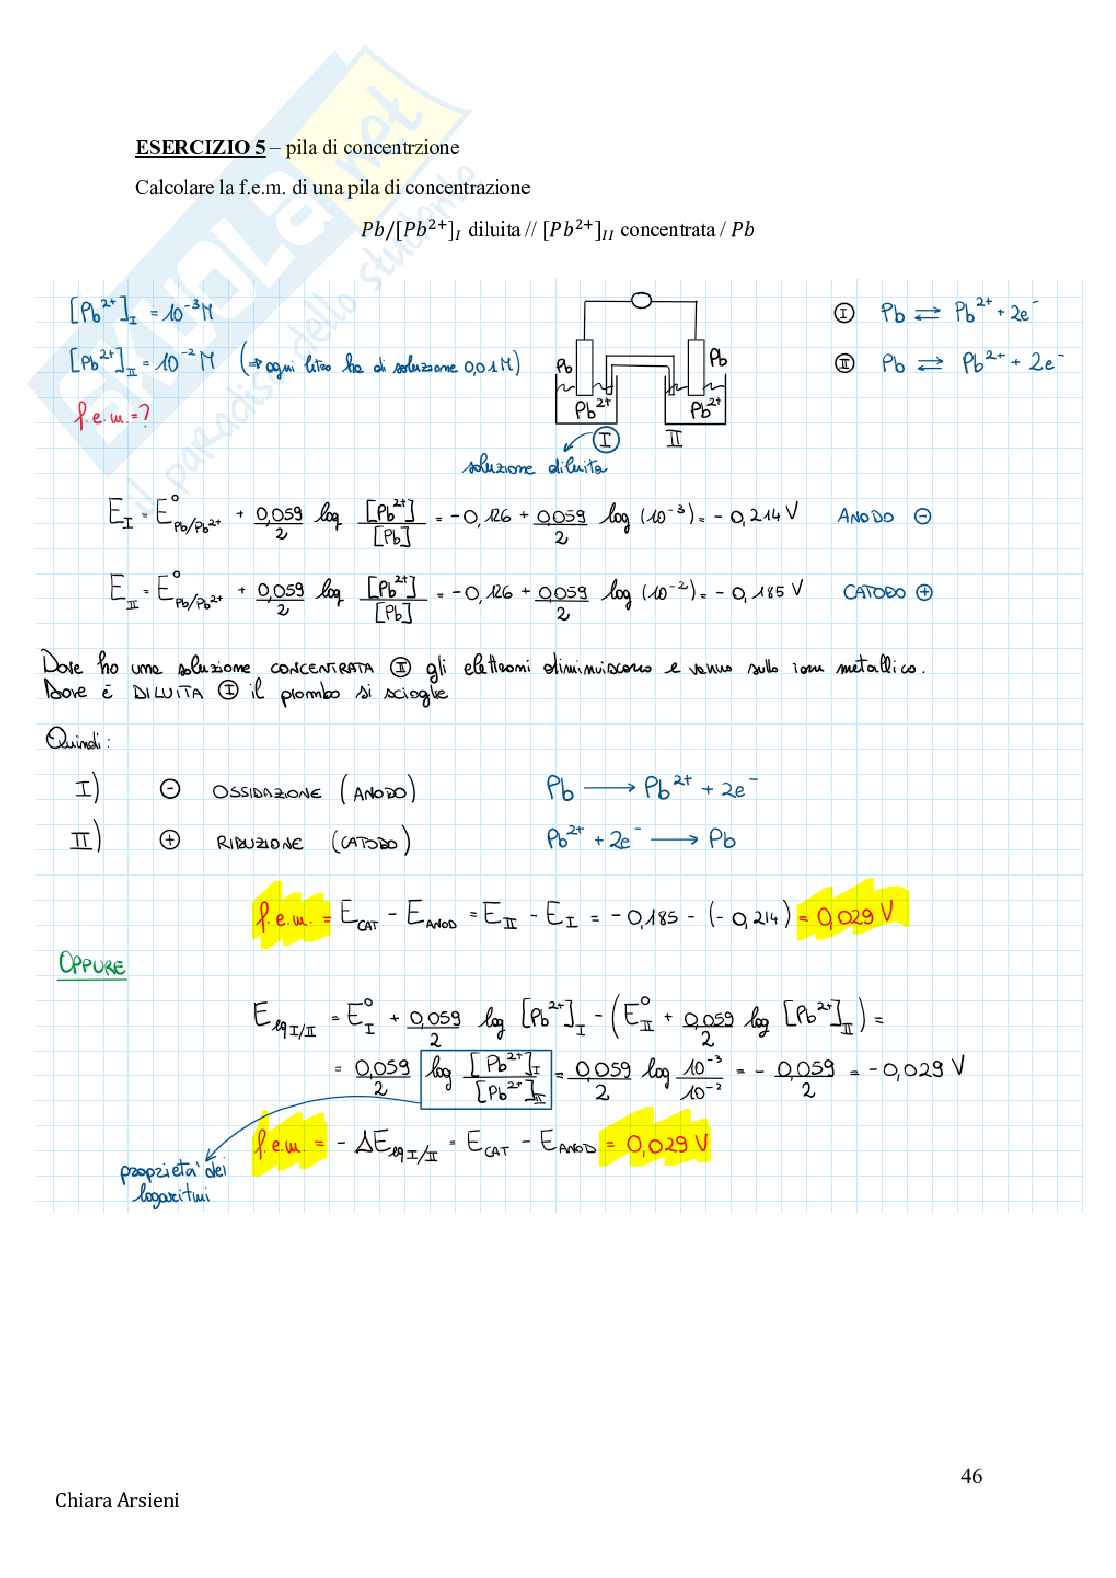 ESERCIZIO 5 – pila di concentrzione
Calcolare la f.e.m. di una pila di concentrazione
Pb/[Pb²⁺]_I diluita // [Pb²⁺]_II concentrata / Pb
SKUOLA.net
il paradiso dello studente
[Pb²⁺]_I = 10⁻³ M
[Pb²⁺]_II = 10⁻² M (⇒ ogni litro ha di soluzione 0,01 M)
f.e.m. = ?
Pb Pb
Pb²⁺ Pb²⁺
I II
soluzione diluita
I Pb ⇄ Pb²⁺ + 2e⁻
II Pb ⇄ Pb²⁺ + 2e⁻
E_I = E⁰_Pb/Pb²⁺ + 0,059/2 log [Pb²⁺]/[Pb] = -0,126 + 0,059/2 log (10⁻³) = -0,214 V ANODO ⊖
E_II = E⁰_Pb/Pb²⁺ + 0,059/2 log [Pb²⁺]/[Pb] = -0,126 + 0,059/2 log (10⁻²) = -0,185 V CATODO ⊕
Dove ho una soluzione CONCENTRATA II gli elettroni diminuiscono e vanno sullo ione metallico.
Dove è DILUITA I il piombo si scioglie
Quindi:
I) ⊖ OSSIDAZIONE (ANODO) Pb → Pb²⁺ + 2e⁻
II) ⊕ RIDUZIONE (CATODO) Pb²⁺ + 2e⁻ → Pb
f.e.m. = E_CAT - E_ANOD = E_II - E_I = -0,185 - (-0,214) = 0,029 V
OPPURE
E_eq I/II = E⁰_I + 0,059/2 log [Pb²⁺]_I - (E⁰_II + 0,059/2 log [Pb²⁺]_II) =
= 0,059/2 log [Pb²⁺]_I/[Pb²⁺]_II = 0,059/2 log 10⁻³/10⁻² = - 0,059/2 = -0,029 V
f.e.m. = - ΔE_eq I/II = E_CAT - E_ANOD = 0,029 V
proprietà dei
logaritmi
46
Chiara Arsieni